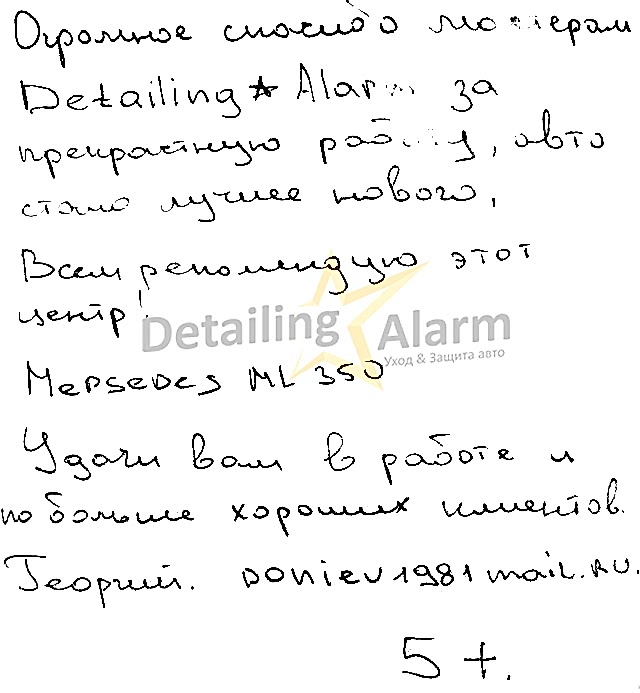 Огромное спасибо мастерам
Detailing★Alarm за
прекрастную работу, авто
стало лучшее нового,
Всем рекомендую этот
центр!
Detailing Alarm
Уход & Защита авто
Mersedes ML 350
Удачи вам в работе и
по больше хороших клиентов.
Георгий. doniev1981mail.ru.
5+.